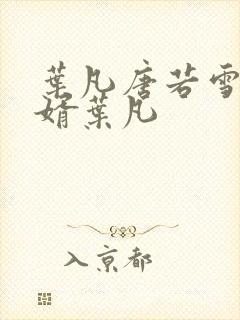 葉凡唐若雪
婿葉凡
入京都